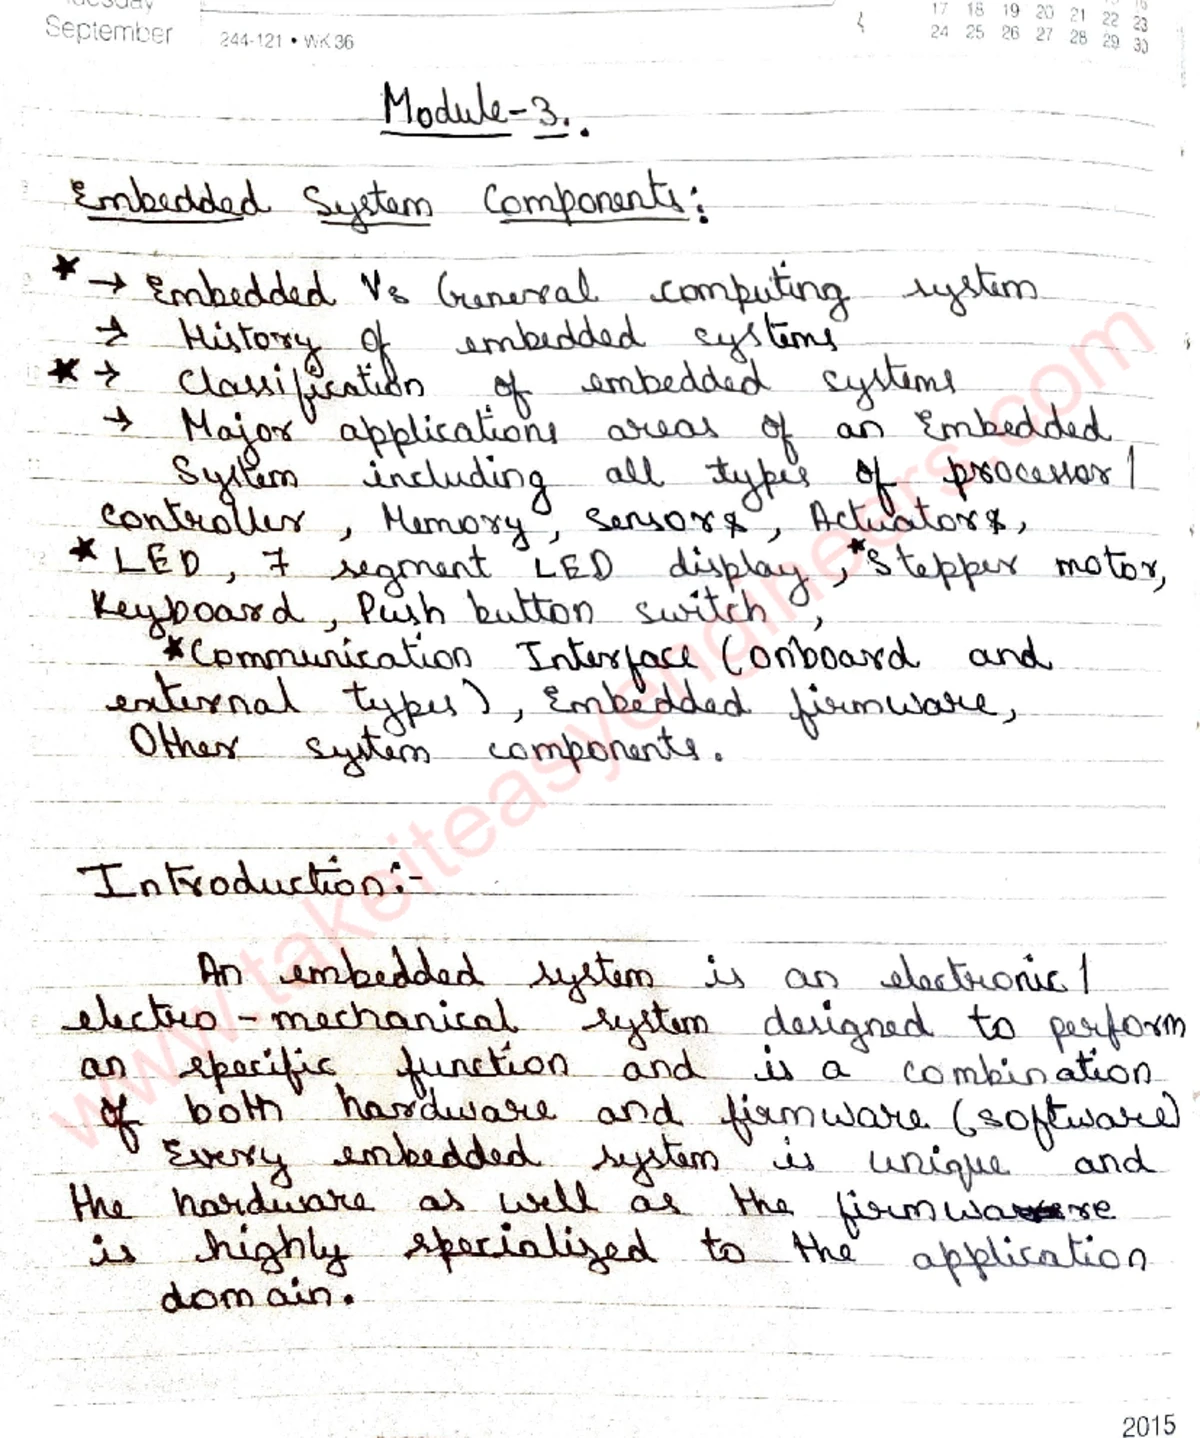 September
244-121 • WK 36
17 18 19 20 21 22 23
24 25 26 27 28 29 30
Module-3.
Embedded System Components:
★ → Embedded Vs General computing system
→ History of embedded systems
★ → Classification of embedded systems
→ Major applications areas of an Embedded
System including all types of processor/
controller, Memory, Sensors, Actuators,
★ LED, 7 segment LED display, ★Stepper motor,
Keyboard, Push button switch,
★Communication Interface (onboard and
external types), Embedded firmware,
Other system components.
Introduction:-
An embedded system is an electronic/
electro-mechanical system designed to perform
an specific function and is a combination
of both hardware and firmware (software)
Every embedded system is unique and
the hardware as well as the firmware
is highly specialized to the application
domain.
www.takeiteasyengineers.com
2015